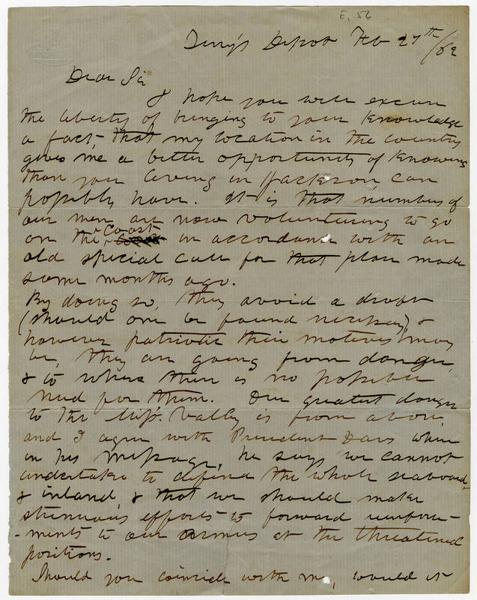 E. 56
Terry's Depot Feb 27th /62
Dear Sir
I hope you will excuse
the liberty of bringing to your knowledge
a fact, that my location in the country
gives me a better opportunity of knowing
than you living in Jackson, can
possibly have. It is that numbers of
our men are now volunteering to go
on the Coast in accordance with an
old special call for that plan made
some months ago.
By doing so, they avoid a draft
(should one be found necessary) &
however patriotic their motives may
be, they are going from danger,
& to where there is no possible
need for them. Our greatest danger
to the Miss. Vally is from above,
and I agree with President Davis when
in his message, he says we cannot
undertake to defend the whole seaboard,
& inland & that we should make
strenuous efforts to forward reinforce-
-ments to our armies at the threatened
positions.
Should you coincide with me, would it